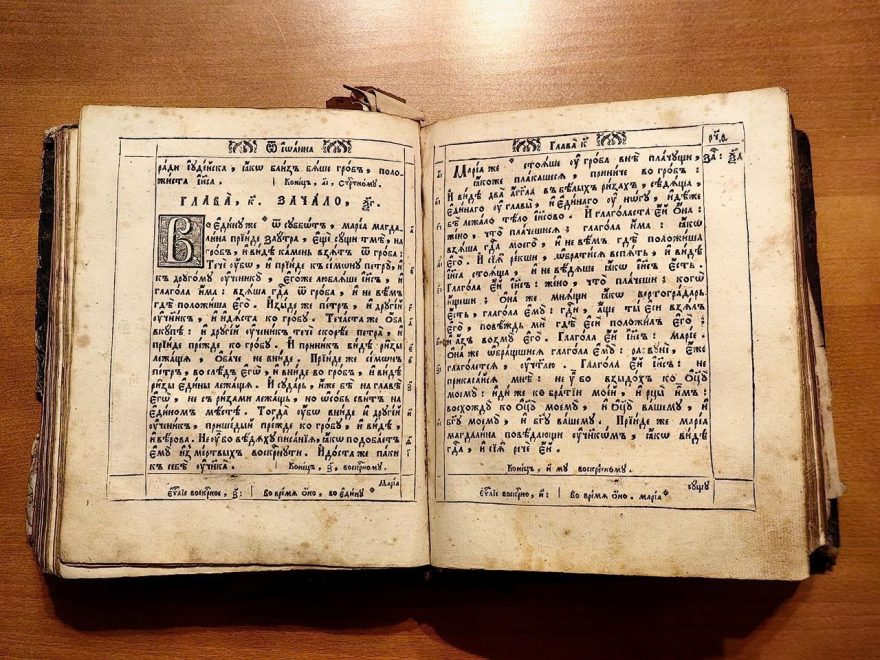 Ѿ Іѡа́нна
ра́ди Іꙋде́йска, ꙗ́кѡ бли́зъ бѧ́ше гро́бъ, поло-
жи́ста І҆и҃са. Коне́цъ,
ГЛАВА̀, К҃. ЗАЧА́ЛО,
Во є҆ди́нꙋ же ѿ сꙋббѡ́тъ, марі́а магда-
ли́на прїи́де заꙋ́тра, є҆щѐ сꙋ́щи тмѣ̀, на
гро́бъ, и҆ ви́дѣ ка́мень взѧ́тъ ѿ гро́ба:
Течѐ ᲂу҆́бѡ, и҆ прїи́де къ сі́мѡнꙋ петрꙋ̀, и҆
къ дрꙋго́мꙋ ᲂу҆ченикꙋ̀, є҆го́же люблѧ́ше і҆и҃съ, и҆
глаго́ла и҆́ма: взѧ́ша гд҇а ѿ гро́ба, и҆ не вѣ́мъ
гдѣ̀ положи́ша є҆го̀. И҆зы́де же пе́тръ, и҆ дрꙋгі́й
ᲂу҆чени́къ, и҆ и҆дѧ́ста ко гро́бꙋ. Теча́ста же ѻ҆́ба
вкꙋ́пѣ: и҆ дрꙋгі́й ᲂу҆чени́къ течѐ скорѣ́е петра̀, и҆
прїи́де пре́жде ко гро́бꙋ. И҆ прини́къ ви́дѣ ри̑зы
лежа́щѧ, ѻ҆ба́че не вни́де. Прїи́де же сі́мѡнъ
пе́тръ, во слѣ́дъ є҆гѡ̀, и҆ вни́де во гро́бъ, и҆ ви́дѣ
ри̑зы є҆ди̑ны лежа́щѧ. И҆ сꙋда́рь, и҆́же бѣ̀ на главѣ̀
є҆гѡ̀, не съ ри́зами лежа́щь, но ѡ҆со́бь сви́тъ на
є҆ди́номъ мѣ́стѣ. Тогда̀ ᲂу҆́бѡ вни́де и҆ дрꙋгі́й
ᲂу҆чени́къ, прише́дый пре́жде ко гро́бꙋ, и҆ ви́дѣ,
и҆ вѣ́рова. Не ᲂу҆̀ бо вѣ́дѧхꙋ писа́нїѧ, ꙗ́кѡ подоба́етъ
є҆мꙋ̀ и҆з̾ ме́ртвыхъ воскре́снꙋти. И҆до́ста же па́ки
къ себѣ̀ ᲂу҆чн҃ка̀. Коне́цъ, воскре́сномꙋ.
Марі́а
Є҆ѵⷢ҇лїе воскре́сное, во вре́мѧ ѻ҆́но, во є҆ди́нꙋ
Глава̀ К҃
Марі́а же стоѧ́ше ᲂу҆ гро́ба внѣ̀ пла́чꙋщи,
ꙗ́коже пла́кашесѧ, прини́че во гро́бъ:
И҆ ви́дѣ два̀ а҆́гг҃ла въ бѣ́лыхъ ри́захъ, сѣдѧ́ща,
є҆ди́наго ᲂу҆ главы̀, и҆ є҆ди́наго ᲂу҆ но́гꙋ, и҆дѣ́же
бѣ̀ лежа́ло тѣ́ло і҆и҃сово. И҆ глаго́ласта є҆́й ѻ҆́на:
же́но, что̀ пла́чешисѧ; глаго́ла и҆́ма: ꙗ́кѡ
взѧ́ша гд҇а моего̀, и҆ не вѣ́мъ гдѣ̀ положи́ша
є҆го̀. И҆ сїѧ̑ ре́кши, ѡ҆брати́сѧ вспѧ́ть, и҆ ви́дѣ
і҆и҃са стоѧ́ща, и҆ не вѣ́дѧше ꙗ́кѡ і҆и҃съ є҆́сть.
Глаго́ла є҆́й і҆и҃съ: же́но, что̀ пла́чеши; кого̀
и҆́щеши; Ѻ҆на́ же мнѧ́щи ꙗ́кѡ вертогра́дарь
є҆́сть, глаго́ла є҆мꙋ̀: гд҇и, а҆́ще ты̀ є҆сѝ взѧ́лъ
є҆го̀, повѣ́ждь мѝ гдѣ̀ є҆сѝ положи́лъ є҆го̀;
и҆ а҆́зъ возмꙋ̀ є҆го̀. Глаго́ла є҆́й і҆и҃съ: Марі́е.
Ѻ҆на́ же ѡ҆бра́щшисѧ глаго́ла є҆мꙋ̀: раввꙋнѝ, є҆́же
глаго́летсѧ, ᲂу҆чт҃лю. Глаго́ла є҆́й і҆и҃съ: не
прикаса́йсѧ мнѣ̀: не ᲂу҆̀ бо взыдо́хъ ко ѻ҆ц҃ꙋ̀
моемꙋ̀: и҆ди́ же ко бра́тїи мое́й, и҆ рцы̀ и҆̀мъ:
восхождꙋ̀ ко ѻ҆ц҃ꙋ̀ моемꙋ̀, и҆ ѻ҆ц҃ꙋ̀ ва́шемꙋ, и҆
бг҃ꙋ моемꙋ̀, и҆ бг҃ꙋ ва́шемꙋ. Прїи́де же марі́а
магдали́на повѣ́дающи ᲂу҆чн҃кѡ́мъ, ꙗ́кѡ ви́дѣ
гд҇а, и҆ сїѧ̑ речѐ є҆́й.
Коне́цъ, и҆ мꙋ воскре́сномꙋ.
Є҆ѵⷢ҇лїе воскр҇но, и҃: Во вре́мѧ ѻ҆́но. марі́а